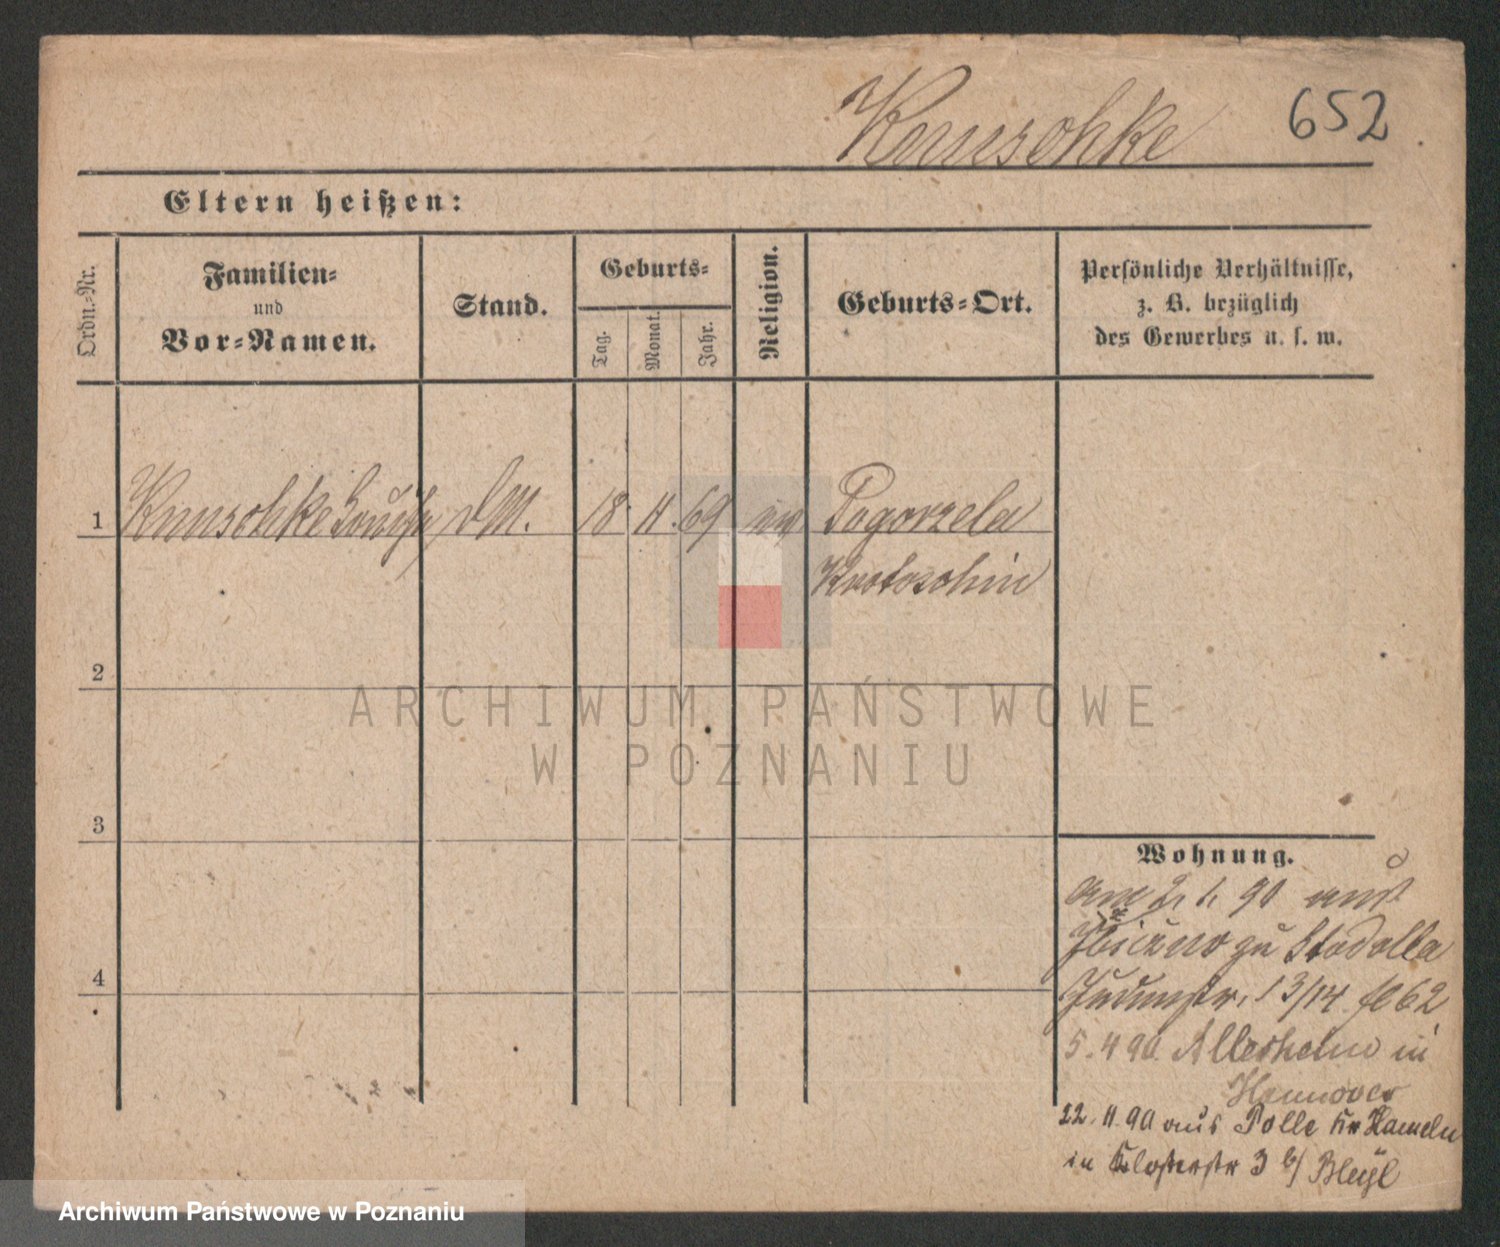 652
Knuschke
Eltern heißen:
Ordn.-Nr.
Familien-
und
Vor-Namen.
Stand.
Geburts-
Tag.
Monat.
Jahr.
Religion.
Geburts-Ort.
Persönliche Verhältnisse,
z. B. bezüglich
des Gewerbes u. s. w.
1
Knuschke Louise
DM.
18
11.
69
ev
Pogorzela
Krotoschin
2
3
4
Wohnung.
am 2. 1. 90 aus
zu Stodolla
13/14
5. 4 90 Allersheim in
Hannover
22. 11. 90 aus Polle Kr Hameln
in Klosterstr 3 b/ Bleyl
ARCHIWUM PAŃSTWOWE
W POZNANIU
Archiwum Państwowe w Poznaniu